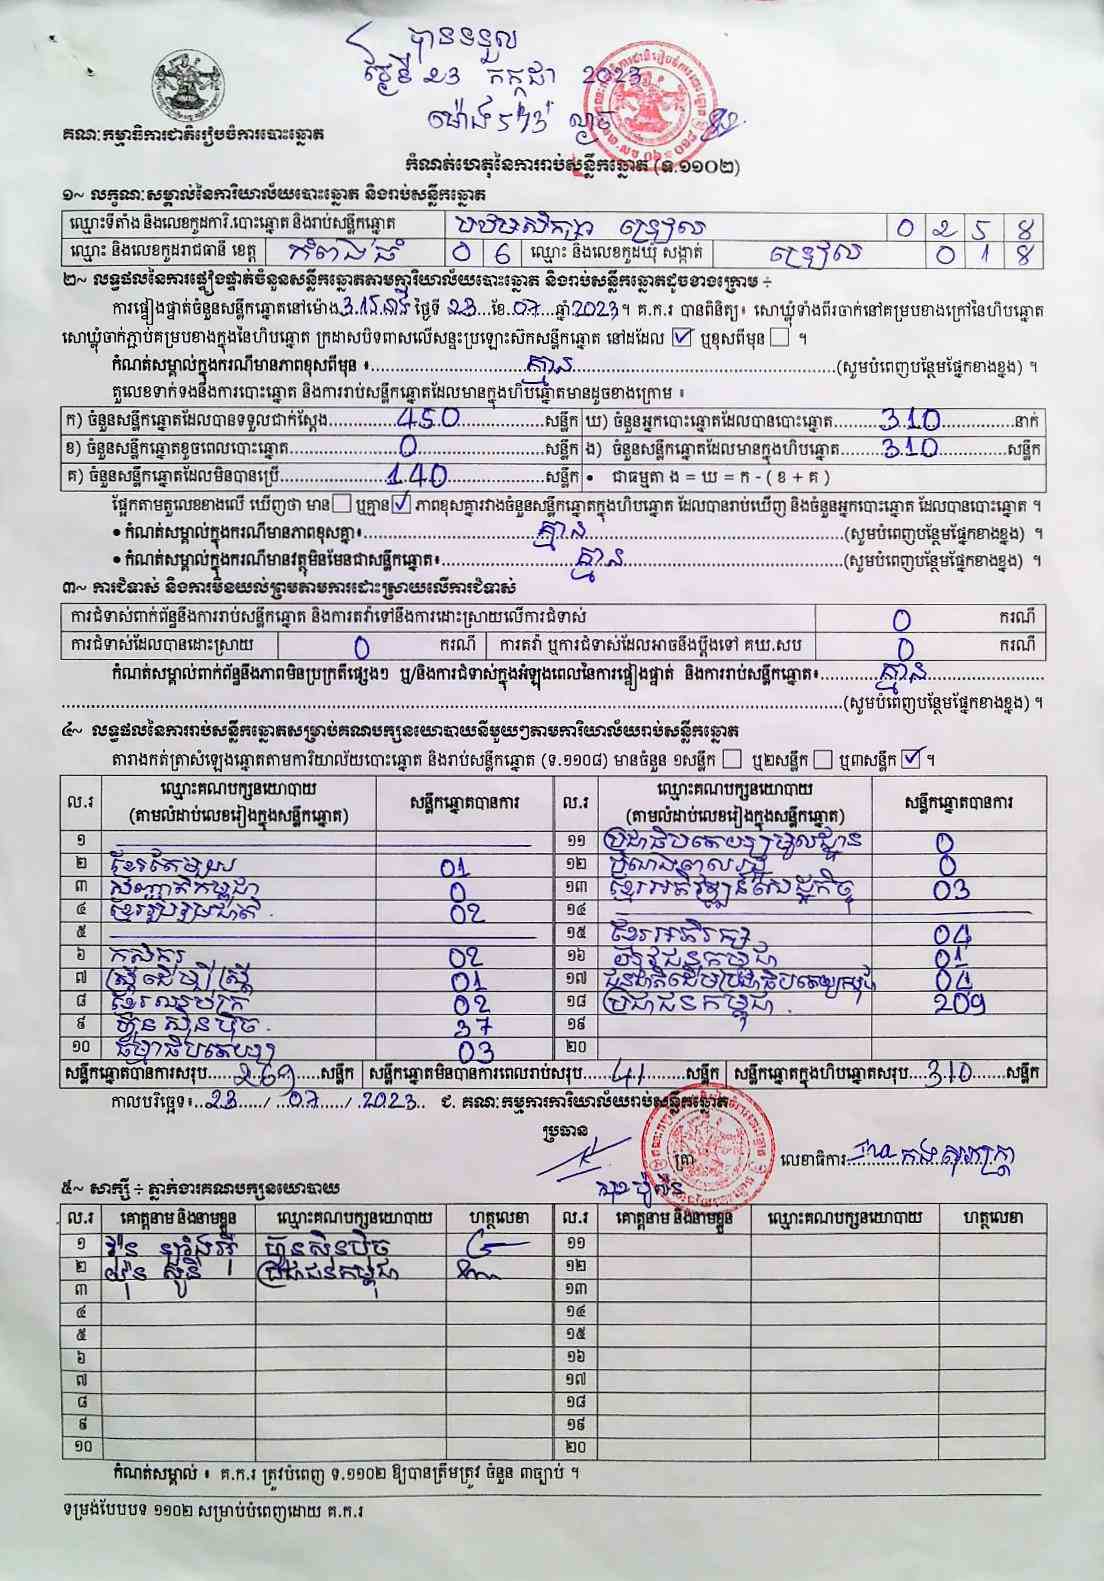 បានទទួល
ថ្ងៃទី 23 កក្កដា 2023
ម៉ោង ល្ងាច
គណៈកម្មាធិការជាតិរៀបចំការបោះឆ្នោត
កំណត់ហេតុនៃការរាប់សន្លឹកឆ្នោត (ទ.១១០២)
១~ លក្ខណៈសម្គាល់នៃការិយាល័យបោះឆ្នោត និងរាប់សន្លឹកឆ្នោត
ឈ្មោះទីតាំង និងលេខកូដការិ.បោះឆ្នោត និងរាប់សន្លឹកឆ្នោត បឋមសិក្សា ទ្រៀល 0 2 5 ៤
ឈ្មោះ និងលេខកូដរាជធានី ខេត្ត កំពង់ធំ 0 6 ឈ្មោះ និងលេខកូដឃុំ សង្កាត់ ទ្រៀល 0 1 ៤
២~ លទ្ធផលនៃការផ្ទៀងផ្ទាត់ចំនួនសន្លឹកឆ្នោតតាមការិយាល័យបោះឆ្នោត និងរាប់សន្លឹកឆ្នោតដូចខាងក្រោម ÷
ការផ្ទៀងផ្ទាត់ចំនួនសន្លឹកឆ្នោតនៅម៉ោង 3.15.នាទី ថ្ងៃទី 23 ខែ 07 ឆ្នាំ 2023។ គ.ក.រ បានពិនិត្យ៖ សោឃ្លុំទាំងពីរចាក់នៅគម្របខាងក្រៅនៃហិបឆ្នោត
សោឃ្លុំចាក់ភ្ជាប់គម្របខាងក្នុងនៃហិបឆ្នោត ក្រដាសបិទពាសលើសន្ទះប្រឡោះស៊កសន្លឹកឆ្នោត នៅដដែល ☑ ឬខុសពីមុន ☐ ។
កំណត់សម្គាល់ក្នុងករណីមានភាពខុសពីមុន ៖ គ្មាន (សូមបំពេញបន្ថែមផ្នែកខាងខ្នង) ។
តួលេខទាក់ទងនឹងការបោះឆ្នោត និងការរាប់សន្លឹកឆ្នោតដែលមានក្នុងហិបឆ្នោតមានដូចខាងក្រោម ៖
ក) ចំនួនសន្លឹកឆ្នោតដែលបានទទួលជាក់ស្តែង 450 សន្លឹក ឃ) ចំនួនអ្នកបោះឆ្នោតដែលបានបោះឆ្នោត 310 នាក់
ខ) ចំនួនសន្លឹកឆ្នោតខូចពេលបោះឆ្នោត 0 សន្លឹក ង) ចំនួនសន្លឹកឆ្នោតដែលមានក្នុងហិបឆ្នោត 310 សន្លឹក
គ) ចំនួនសន្លឹកឆ្នោតដែលមិនបានប្រើ 140 សន្លឹក • ជាធម្មតា ង = ឃ = ក - ( ខ + គ )
ផ្អែកតាមតួលេខខាងលើ ឃើញថា មាន ☐ ឬគ្មាន ☑ ភាពខុសគ្នារវាងចំនួនសន្លឹកឆ្នោតក្នុងហិបឆ្នោត ដែលបានរាប់ឃើញ និងចំនួនអ្នកបោះឆ្នោត ដែលបានបោះឆ្នោត ។
• កំណត់សម្គាល់ក្នុងករណីមានភាពខុសគ្នា៖ គ្មាន (សូមបំពេញបន្ថែមផ្នែកខាងខ្នង) ។
• កំណត់សម្គាល់ក្នុងករណីមានវត្ថុមិនមែនជាសន្លឹកឆ្នោត៖ គ្មាន (សូមបំពេញបន្ថែមផ្នែកខាងខ្នង) ។
៣~ ការជំទាស់ និងការមិនយល់ព្រមតាមការដោះស្រាយលើការជំទាស់
ការជំទាស់ពាក់ព័ន្ធនឹងការរាប់សន្លឹកឆ្នោត និងការតវ៉ាទៅនឹងការដោះស្រាយលើការជំទាស់ 0 ករណី
ការជំទាស់ដែលបានដោះស្រាយ 0 ករណី ការតវ៉ា ឬការជំទាស់ដែលអាចនឹងប្តឹងទៅ គឃ.សប 0 ករណី
កំណត់សម្គាល់ពាក់ព័ន្ធនឹងភាពមិនប្រក្រតីផ្សេងៗ ឬ/និងការជំទាស់ក្នុងអំឡុងពេលនៃការផ្ទៀងផ្ទាត់ និងការរាប់សន្លឹកឆ្នោត៖ គ្មាន
(សូមបំពេញបន្ថែមផ្នែកខាងខ្នង) ។
៤~ លទ្ធផលនៃការរាប់សន្លឹកឆ្នោតសម្រាប់គណបក្សនយោបាយនីមួយៗតាមការិយាល័យរាប់សន្លឹកឆ្នោត
តារាងកត់ត្រាសំឡេងឆ្នោតតាមការិយាល័យបោះឆ្នោត និងរាប់សន្លឹកឆ្នោត (ទ.១១០៨) មានចំនួន ១សន្លឹក ☐ ឬ២សន្លឹក ☐ ឬ៣សន្លឹក ☑ ។
ល.រ ឈ្មោះគណបក្សនយោបាយ (តាមលំដាប់លេខរៀងក្នុងសន្លឹកឆ្នោត) សន្លឹកឆ្នោតបានការ ល.រ ឈ្មោះគណបក្សនយោបាយ (តាមលំដាប់លេខរៀងក្នុងសន្លឹកឆ្នោត) សន្លឹកឆ្នោតបានការ
១ ១១ ប្រជាធិបតេយ្យមូលដ្ឋាន 0
២ ខ្មែរតែមួយ 01 ១២ 0
៣ សញ្ជាតិកម្ពុជា 0 ១៣ ខ្មែរអភិវឌ្ឍន៍សេដ្ឋកិច្ច 03
៤ ខ្មែររួបរួមជាតិ 02 ១៤
៥ ១៥ ខ្មែរអភិរក្ស 04
៦ កសិករ 02 ១៦ យុវជនកម្ពុជា 01
៧ ស្ត្រីដើម្បីស្ត្រី 01 ១៧ ជនជាតិដើមប្រជាធិបតេយ្យកម្ពុជា 04
៨ ខ្មែរឈប់ក្រ 02 ១៨ ប្រជាជនកម្ពុជា 209
៩ ហ៊្វុនស៊ិនប៉ិច 37 ១៩
១០ ធម្មាធិបតេយ្យ 03 ២០
សន្លឹកឆ្នោតបានការសរុប 269 សន្លឹក សន្លឹកឆ្នោតមិនបានការពេលរាប់សរុប 41 សន្លឹក សន្លឹកឆ្នោតក្នុងហិបឆ្នោតសរុប 310 សន្លឹក
កាលបរិច្ឆេទ៖ 23 / 07 / 2023 ជ. គណៈកម្មការការិយាល័យរាប់សន្លឹកឆ្នោត
ប្រធាន
លេខាធិការ
៥~ សាក្សី ÷ ភ្នាក់ងារគណបក្សនយោបាយ
ល.រ គោត្តនាម និងនាមខ្លួន ឈ្មោះគណបក្សនយោបាយ ហត្ថលេខា ល.រ គោត្តនាម និងនាមខ្លួន ឈ្មោះគណបក្សនយោបាយ ហត្ថលេខា
១ ហ៊្វុនស៊ិនប៉ិច ១១
២ ប្រជាជនកម្ពុជា ១២
៣ ១៣
៤ ១៤
៥ ១៥
៦ ១៦
៧ ១៧
៨ ១៨
៩ ១៩
១០ ២០
កំណត់សម្គាល់ ៖ គ.ក.រ ត្រូវបំពេញ ទ.១១០២ ឱ្យបានត្រឹមត្រូវ ចំនួន ៣ច្បាប់ ។
ទម្រង់បែបបទ ១១០២ សម្រាប់បំពេញដោយ គ.ក.រ